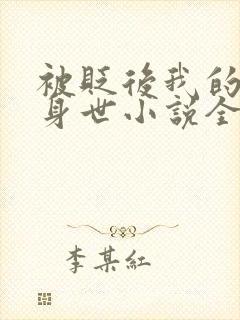 被贬后我的
身世小说全
李某红